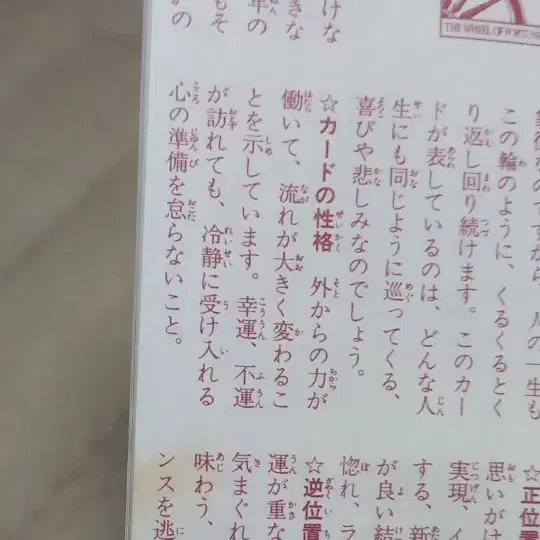 THE WHEEL OF FORTUN
けな
きな
年の
もそ
なのですから、人の一生も
この輪のように、くるくるとく
り返し回り続けます。このカー
ドが表しているのは、どんな人
生にも同じように巡ってくる、
喜びや悲しみなのでしょう。
☆カードの性格　外からの力が
働いて、流れが大きく変わるこ
とを示しています。幸運、不運
が訪れても、冷静に受け入れる
心の準備を怠らないこと。
☆正位置
思いがけ
実現、イ
する、新
が良い結
惚れ、ラ
☆逆位置
運が重な
気まぐれ
味わう、
ンスを逃